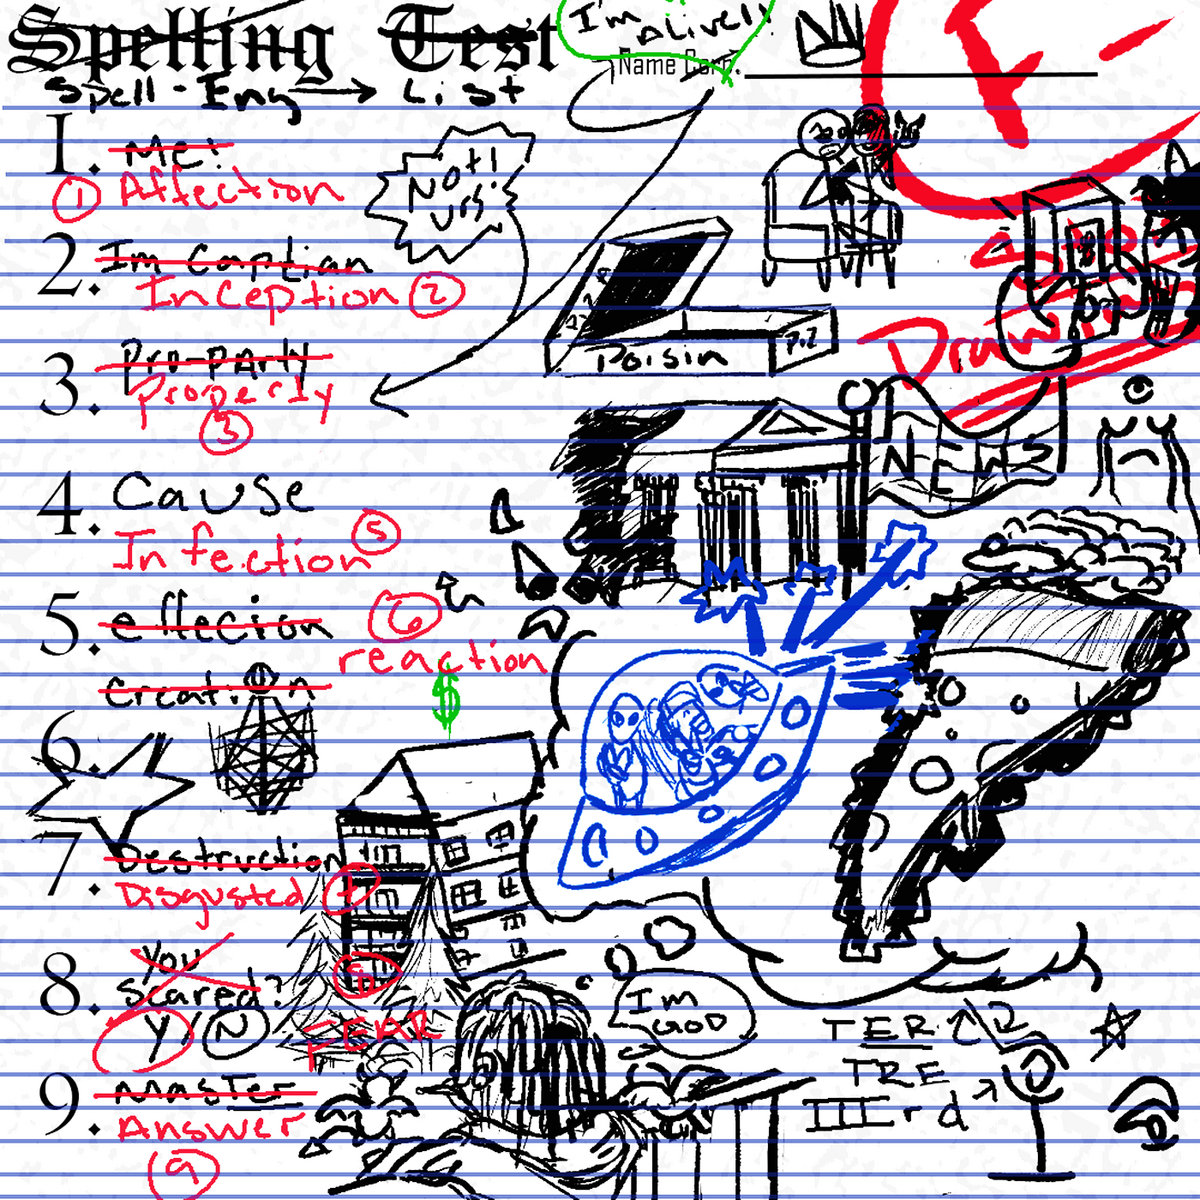 Spelling Test
I'm
ALive!!
Name Corp.
F-
Spell-Eng → List
1. Me!
① Affection
Not!
Urs!
2. Im Captian
Inception ②
3. Pro-party
Property
③
Poisin
P.2
Drawing
NEWS
4. Cause
Infection ⑤
5. effecion
⑥
reaction
$
creation
6.
7. Destruction
Disgusted
8. You
Scared?
Y/N
FEAR
I'm
GOD
TER
TRE
IIIrd
9. Master
Answer
⑨